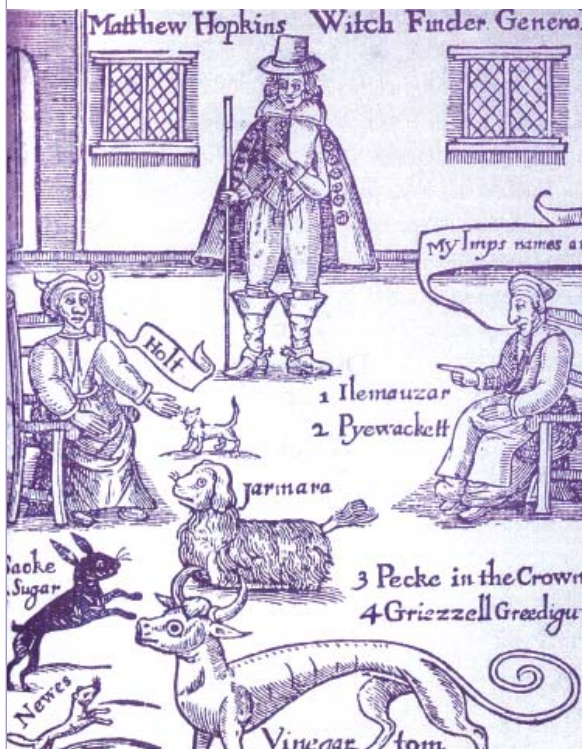 Matthew Hopkins Witch Finder Genera
My Imps names a
Holt
1 Ilemauzar
2 Pyewackett
Jarmara
Sacke
Sugar
3 Pecke in the Crown
4 Griezzell Greedigu
Newes
Vinegar tom